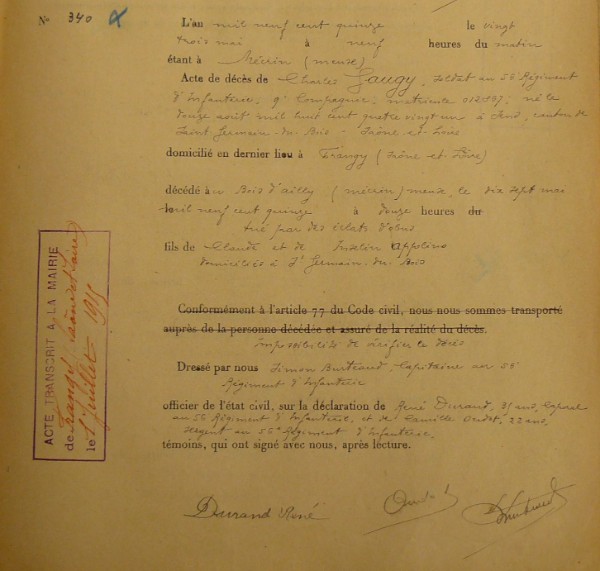 N° 340
L'an mil neuf cent quinze le vingt
trois mai à neuf heures du matin
étant à Mécrin (meuse)
Acte de décès de Charles Gaugy, soldat au 56 Régiment
d'Infanterie, 9e Compagnie, matricule 012997, né le
douze août mil huit cent quatre vingt un à, canton de
Saint Germain-du-Bois - Saône et-Loire
domicilié en dernier lieu à Frangy (Saône et-Loire)
décédé au Bois d'ailly (mécrin) meuse, le dix sept mai
mil neuf cent quinze à douze heures du
tué par des éclats d'obus
fils de Claude et de Appoline
domiciliés à St Germain-du-Bois
Conformément à l'article 77 du Code civil, nous nous sommes transporté
auprès de la personne décédée et assuré de la réalité du décès.
Impossibilité de vérifier le décès
Dressé par nous Simon, Capitaine au 56e
Régiment d'Infanterie
officier de l'état civil, sur la déclaration de René Durand, ans, Caporal
au 56 Régiment d'Infanterie, et de Camille, 22 ans,
sergent au 56e Régiment d'Infanterie,
témoins, qui ont signé avec nous, après lecture.
Durand René
ACTE TRANSCRIT A LA MAIRIE
de Frangy Saône et Loire
le juillet 1915